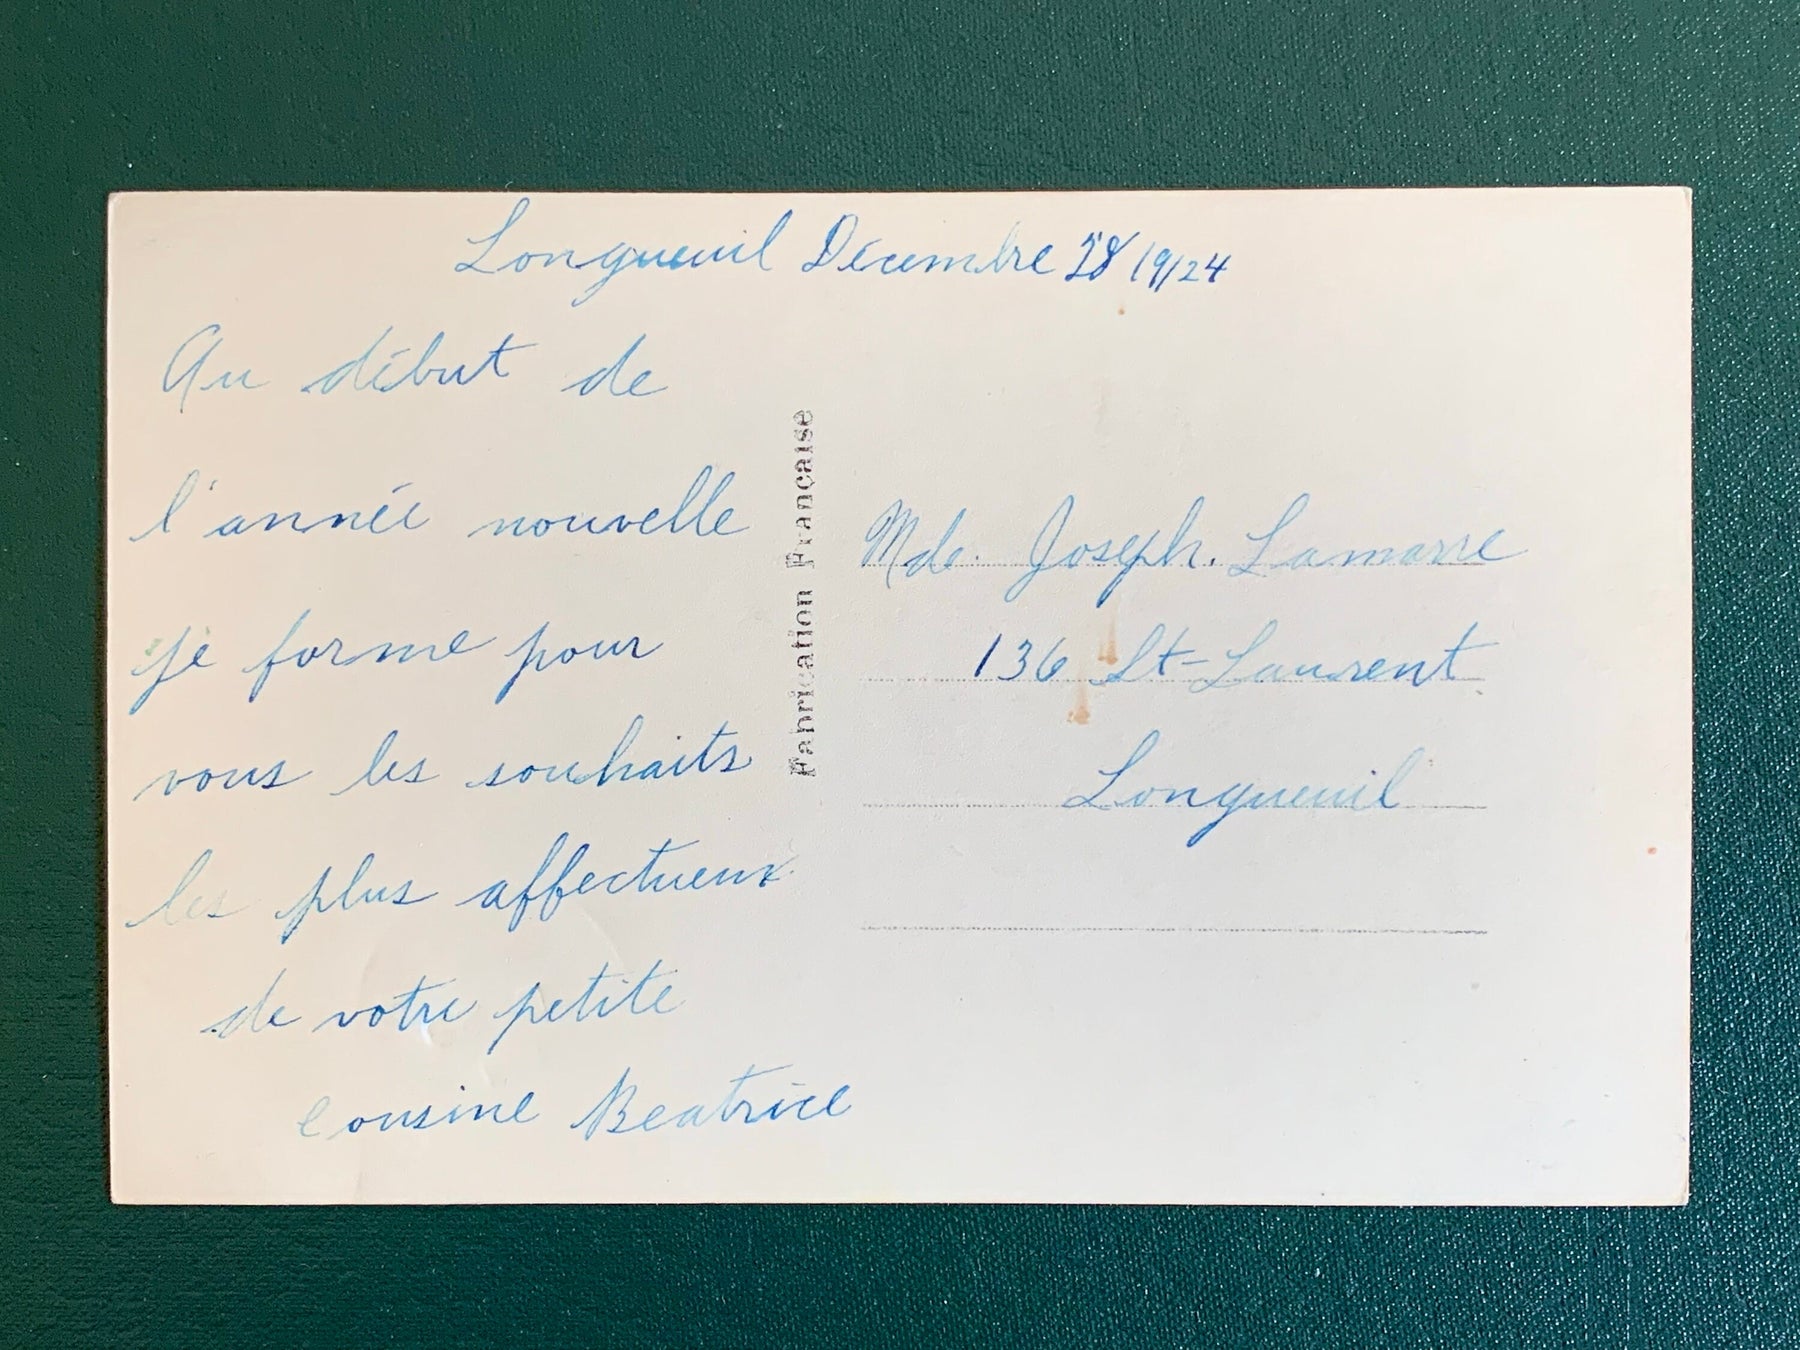 Longueuil Décembre 28 19/24
Au début de
l'année nouvelle
je forme pour
vous les souhaits
les plus affectueux
de votre petite
cousine Beatrice
Fabrication Française
Mde. Joseph. Lamarre
136 St-Laurent
Longueuil